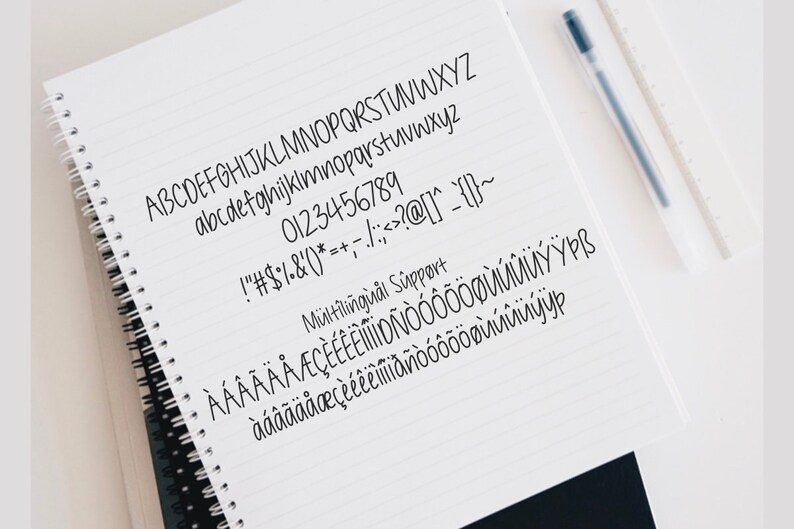 ABCDEFGHIJKLMNOPQRSTUVWXYZ
abcdefghijklmnopqrstuvwxyz
0123456789
!"#$%&'()*=+,-./:;<>?@[]^_`{|}~
Mültîlîngùål Sûppørt
ÀÁÂÃÄÅÆÇÈÉÊËÌÍÎÏÐÑÒÓÔÕÖØÙÚÛÜÝŸÞß
àáâãäåæçèéêëìíîïðñòóôõöøùúûüýÿþ